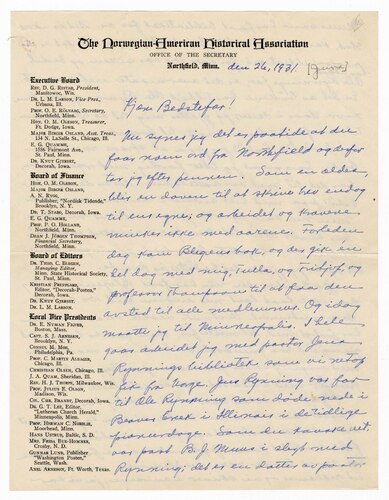 The Norwegian-American Historical Association
OFFICE OF THE SECRETARY
Northfield, Minn.
den 26, 1931.
Executive Board
REV. D. G. RISTAD, President,
Manitowoc, Wis.
DR. L. M. LARSON, Vice Pres.,
Urbana, Ill.
PROF. O. E. RÖLVAAG, Secretary,
Northfield, Minn.
HON. O. M. OLESON, Treasurer,
Ft. Dodge, Iowa.
MAJOR BIRGER OSLAND, Asst. Treas.,
134 N. La Salle St., Chicago, Ill.
E. G. QUAMME,
1586 Fairmont Ave.,
St. Paul, Minn.
DR. KNUT GJERSET,
Decorah, Iowa.
Board of Finance
HON. O. M. OLESON,
MAJOR BIRGER OSLAND,
A. N. RYGG,
Publisher, "Nordisk Tidende,"
Brooklyn, N. Y.
DR. T. STABO, Decorah, Iowa.
E. G. QUAMME,
St. Paul, Minn.
PROF. P. O. HOLLAND,
Northfield, Minn.
DEAN J. JÖRGEN THOMPSON,
Financial Secretary,
Northfield, Minn.
Board of Editors
DR. THEO. C. BLEGEN,
Managing Editor,
Minn. State Historical Society,
St. Paul, Minn.
KRISTIAN PRESTGARD,
Editor, "Decorah-Posten,"
Decorah, Iowa.
DR. KNUT GJERSET
DR. L. M. LARSON.
Local Vice Presidents
DR. E. NYMAN FIGVED,
Boston, Mass.
CAPT. S. J. ARNESEN,
Brooklyn, N. Y.
CONSUL M. MOE,
Philadelphia, Pa.
PROF. C. MARTIN ALSAGER,
Chicago, Ill.
CHRISTIAN OLSEN, Chicago, Ill.
J. A. QUAM, Sheridan, Ill.
REV. H. J. THORPE, Milwaukee, Wis.
PROF. JULIUS E. OLSON,
Madison, Wis.
COL. CHR. BRANDT, Decorah, Iowa.
DR. G. T. LEE, Editor,
"Lutheran Church Herald,"
Minneapolis, Minn.
PROF. HERMAN C. NORDLIE,
Moorhead, Minn.
HANS USTRUD, Baltic, S. D.
MRS. FRIDA BUE-HOMNES,
Crosby, N. D.
GUNNAR LUND, Publisher
"Washington Posten,"
Seattle, Wash.
AXEL ARNESON, Ft. Worth, Texas.
Kjære Bedstefar!
Nu synes jeg det er paatide at du
faar nam ord fra Northfield og derfor
tar jeg efter pennen. Som en eldes,
blir en doven til at skrive brev endog
til ens egne; og arbeidet og kravene
minker ikke med aarene. Forleden
dag kom Blegens bok, og der gik en
hel dag med mig, Tulla, og Fridtjof, og
professor Thompson til at faa den
avsted til alle medlemmer. Og idag
maatte jeg til Minneapolis. I hele
gaar arbeidet jeg med pastor Jens
Rynnings bibliotek som vi netop
fik fra Norge. Jens Rynning var far
til Ole Rynning som døde nede i
Beaver Creek i Illinois i de tidlige
pionerdage. Som du kanske vet
var past. B. J. Muus i slegt med
Rynning; det er en datter av pastor